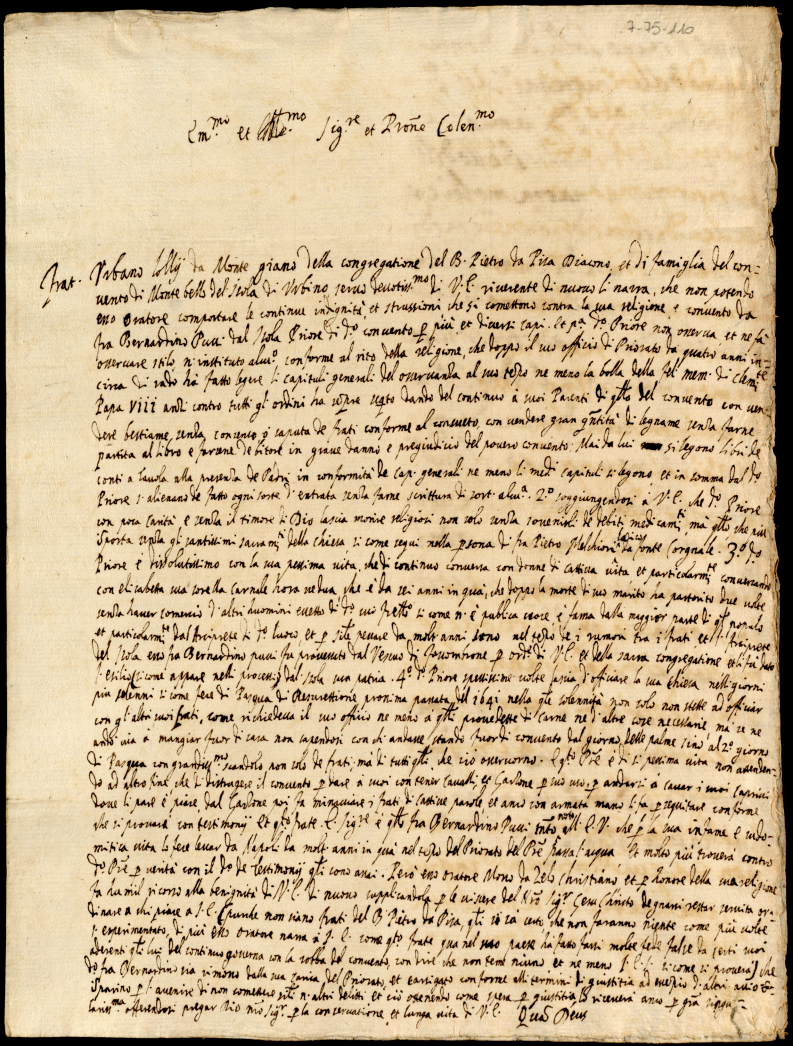 7-75-110
Em.mo et Sig.re et Prone Colen.mo
frat. Urbano lollij da Monte piano della congregatione del B. Pietro da Pisa Diacono, et di famiglia del con-
vento di Monte bello del Isola di Urbino servo devotiss.mo di V.E. riverente di nuovo li narra, che non potendo
esso oratore comportare le continue indignità et strussioni che si comettono contra la sua religione, e convento da
fra Bernardino Pucci dal Isola Priore di d.o convento p più et diversi capi. et p.a d.o Priore non osserva et ne fa
osservare stilo, n instituto alcu.o conforme al rito della religione, che doppo il suo officio di Priorato da quatro anni in
circa di rado hà fatto legere li capituli generali del osservanza al suo tepo ne meno la bolla della feli mem. di Clem.te
Papa VIII anzi contro tutti gl'ordini ha sepre dando del continuo à suoi Parenti di gllo del convento con ven-
dere bestiame, senza consenso ò saputa de frati conforme al consueto, con vendere gran qntità di legname senza farne
partita al libro e farsene debitore in grave danno e pregiudicio del povero convento. Mai da lui si legono libri de
conti a tavola alla presenza de Padri in conformità de cap. generali ne meno li med.i capituli si legono et in somma dal d.o
Priore s'alienano de fatto ogni sorte d'entrata senza farne scrittura di sort' alcu.a. 2.o soggiungendosi à V.E. che d.o Priore
con poca carità e senza il timore di Dio lascia morire religiosi non solo senza sovenirli de debiti medicam.ti, mà gllo che più
importa senza gli santissimi sacram.ti della chiesa si come segui nella psona di fra Pietro Melchiori laico da fonte Corgnale. 3.o d.o
Priore è dissolutissimo con la sua pessima vita, che di continuo conversa con donne di cattiva vita et particolarm.te conversando
con elisabetta sua sorella Carnale hora vedua, che è da sei anni in quà, che doppo la morte di suo marito ha partorito due volte
senza haver comercio d'altri huomini eccetto di d.o suo frello si come n' è publica voce è fama dalla maggior parte di gl
et particolarm.te dal Arciprete di d.o luoco et p sile pecare da molti anni sono nel tepo de i rumori tra i frati et l'Arciprete
del Isola esso fra Bernardino pucci fu processato dal Vescuo di fossombrone p ord.e di V.E. et della sacra congregatione et li fù dato
l'esilio (si come appare nelli processi) dal Isola sua patria. 4.o d.o Priore spessissime volte lascia d'officiare la sua chiesa nelli giorni
più solenni si come fece di Pasqua di Resurettione prossima passata del 1641 nella qle solennità non solo non stette ad officiar
con gl'altri suoi frati, come richiedeva il suo officio ne meno à glli provedette di Carne ne d'altre coze necessarie, mà se ne
andò via à mangiar fuor di casa non sapendosi con chi andasse stando fuor di convento dal giorno delle palme sino al 2.o giorno
di Pasqua con grandiss.mo scandolo non solo de frati mà di tutti glli, che ciò osservorno. Qsto Pre è di si pessima vita non attenden-
do ad altro fine che di distrugere il convento p dare à suoi con tener Cavalli, et Garzone p suo uso, p andarsi a cavar i suoi Carricci
dove li pare è piace dal Garzone poi fa minacciare i frati di cattive parole et anco con armata mano li fa pseguitare conforme
che si provarà con testimonij et qto frate. E. Sig.re è qllo fra Bernardino Pucci tnto noto all' E.V. che p la sua infame e sodo-
mitica vita lo fece levar da Napoli da molt'anni in quà nel tepo del Priorato del Pre Passa l'acqua et molto più troverà contro
d.o Pre p verità con il d.o de Testimonij gli sono assai. Però esso oratore Mosso da Zelo Christiano et p honore della sua religione
fa humil ricorso alla benignità di V.E. di nuovo supplicandola p le viscere del Nro Sig.r Giesu Christo degnarsi restar servita or-
dinare a chi piace a S.E. (purche non siano frati del B Pietro da Pisa, gli sò sà certo, che non faranno niente come più volte
s'è esperimentato, di più esso oratore narra à S.E. come qto frate qua nel suo paese ha fatto farsi molte fede false da certi suoi
aderenti gli lui del continuo governa con la robba del convento, con dire che non teme niuno et ne meno S.E. si come si proverà) che
d.o fra Bernardino sia rimosso dalla sua carica del Priorato, et castigato conforme alli termini di giustitia ad esempio d'altri
p l'avenire di non comettere sili n altri delitti et ciò ottenendo come spera p giustitia lo riceverà anco p gra singu-
lariss.ma offerendosi pregar Dio nro Sig.r p la conservatione et lunga vita di V.E. Quas Deus